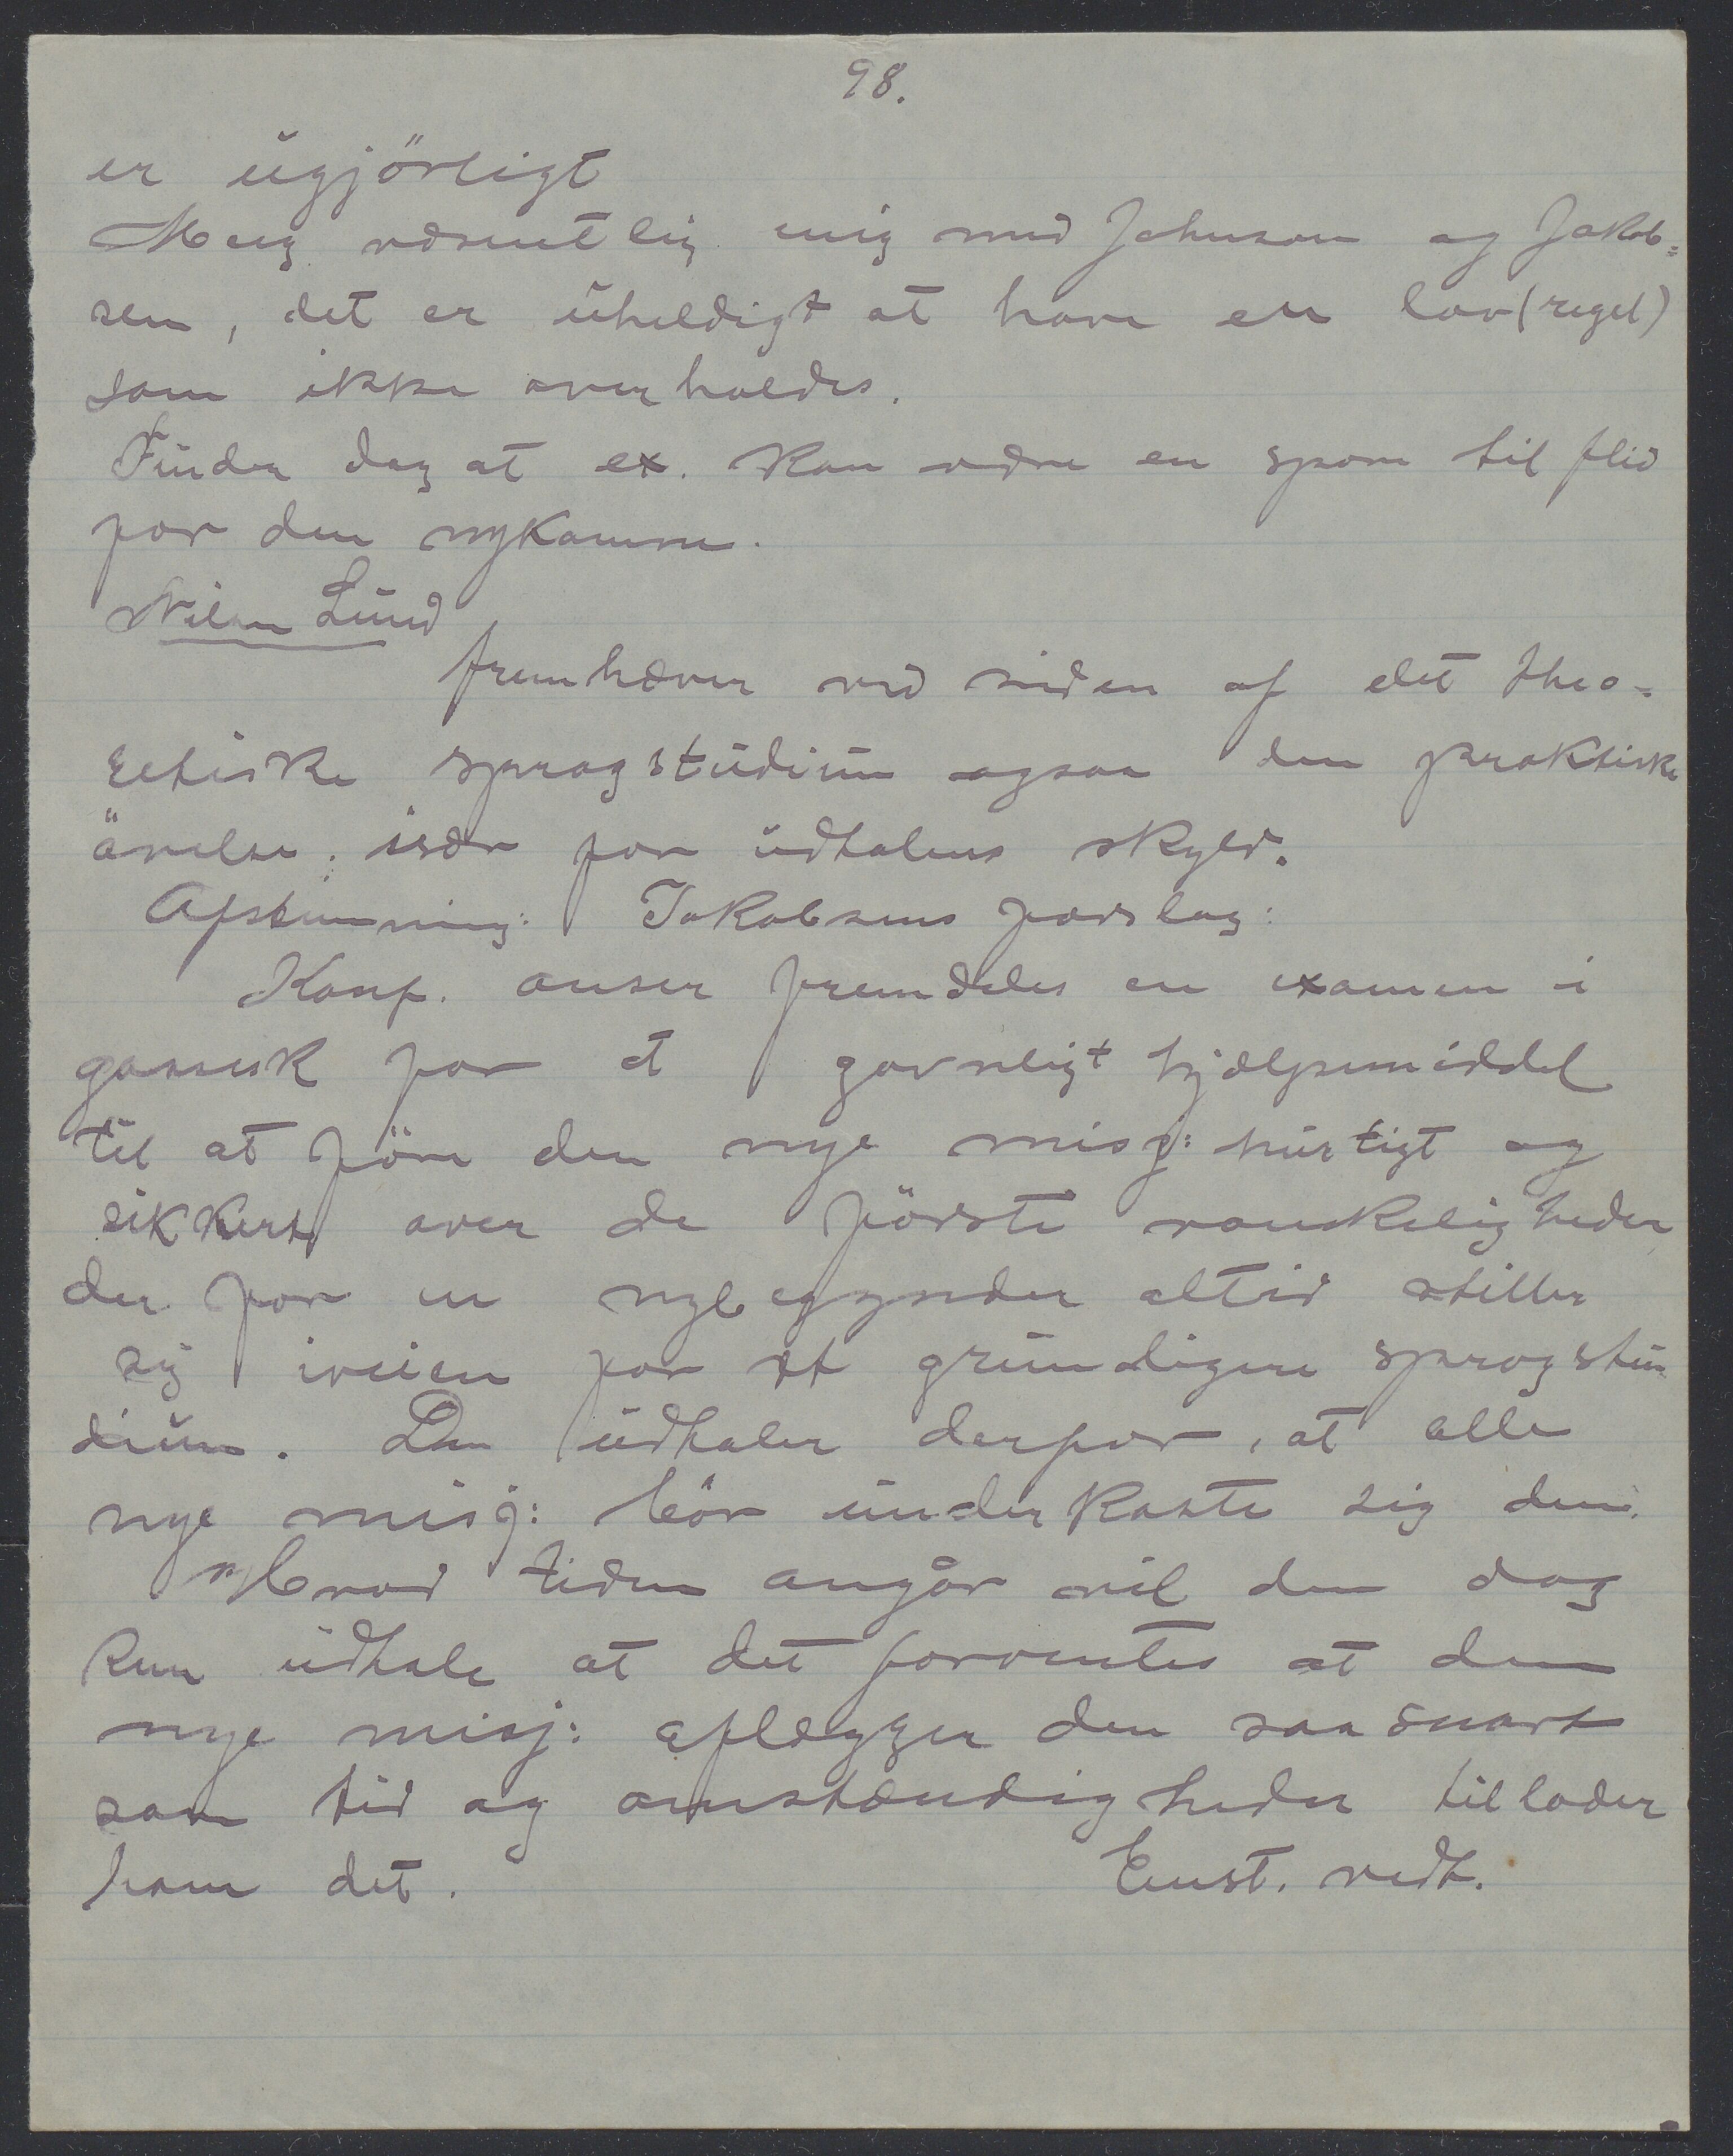 98.
er ugjörligt
Meeg væsentlig enig med Johnson og Jakob=
sen, det er uheldigt at have en lov (regel)
som ikke overholdes.
Finder dog at ex. kan være en spore til flid
for den nykomne.
Nilsen Lund
fremhæver ved siden af det theo=
retiske sprogstudium ogsaa den praktiske
övelse; især for udtalens skyld.
Afstemning: Jakobsens forslag:
Konf. anser fremdeles en examen i
gassisk for et gavnligt hjælpemiddel
til at före den nye misj: hurtigt og
sikkert over de förste vanskeligheder
der for en nybegynder altid stiller
sig iveien for et grundigere sprogstu
dium. Den udtaler derfor, at alle
nye misj: bör underkaste sig den.
Hvad tiden angår vil den dog
kun udtale at det forventes at den
nye misj: aflægger den saa snart
som tid og omstændigheder tillader
ham det. Enst. vedt.